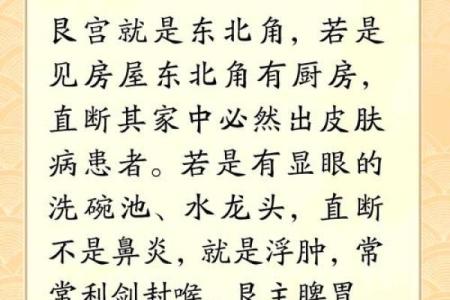 艮宫就是东北角，若是
见房屋东北角有厨房，
直断其家中必然出皮肤
病患者。若是有显眼的
洗碗池、水龙头，直断
不是鼻炎，就是浮肿，常
常利剑封喉。艮主脾胃